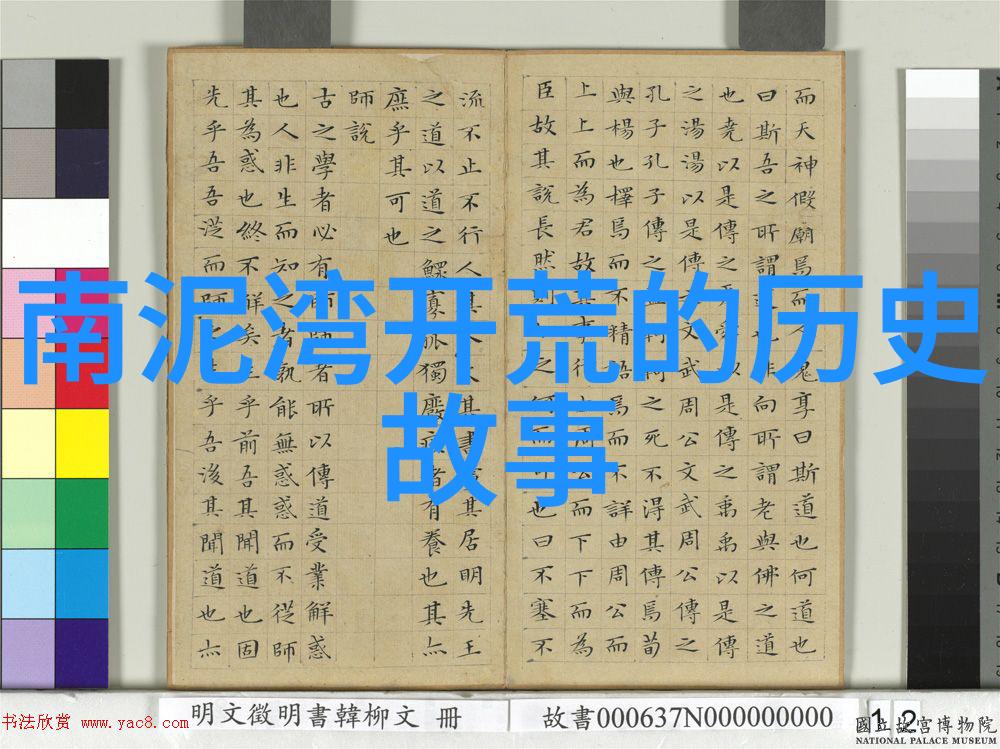 南泥湾开荒的历史
故事
而天神假廟焉而人鬼享曰斯道也何道也
曰斯吾之所謂道也非向所謂老與佛之道
也堯以是傳之舜舜以是傳之禹禹以是傳
之湯湯以是傳之文武周公文武周公傳之
孔子孔子傳之孟軻軻之死不得其傳焉荀
與楊也擇焉而不精語焉而不詳由周公而
上上而為君故其事行由周公而下下而為
臣故其說長然則如之何而可也曰不塞不
流不止不行人其人火其書廬其居明先王
之道以道之鰥寡孤獨廢疾者有養也其亦
庶乎其可也
師說
古之學者必有師師者所以傳道受業解惑
也人非生而知之者孰能無惑惑而不從師
其為惑也終不解矣生乎前吾其聞道也固
先乎吾吾從而師之生乎吾後其聞道也亦
明文徵明書韓柳文 冊
故書000637N000000000
12
書法欣赏 www.yac8.com
國立故宮博物院
NATIONAL PALACE MUSEUM